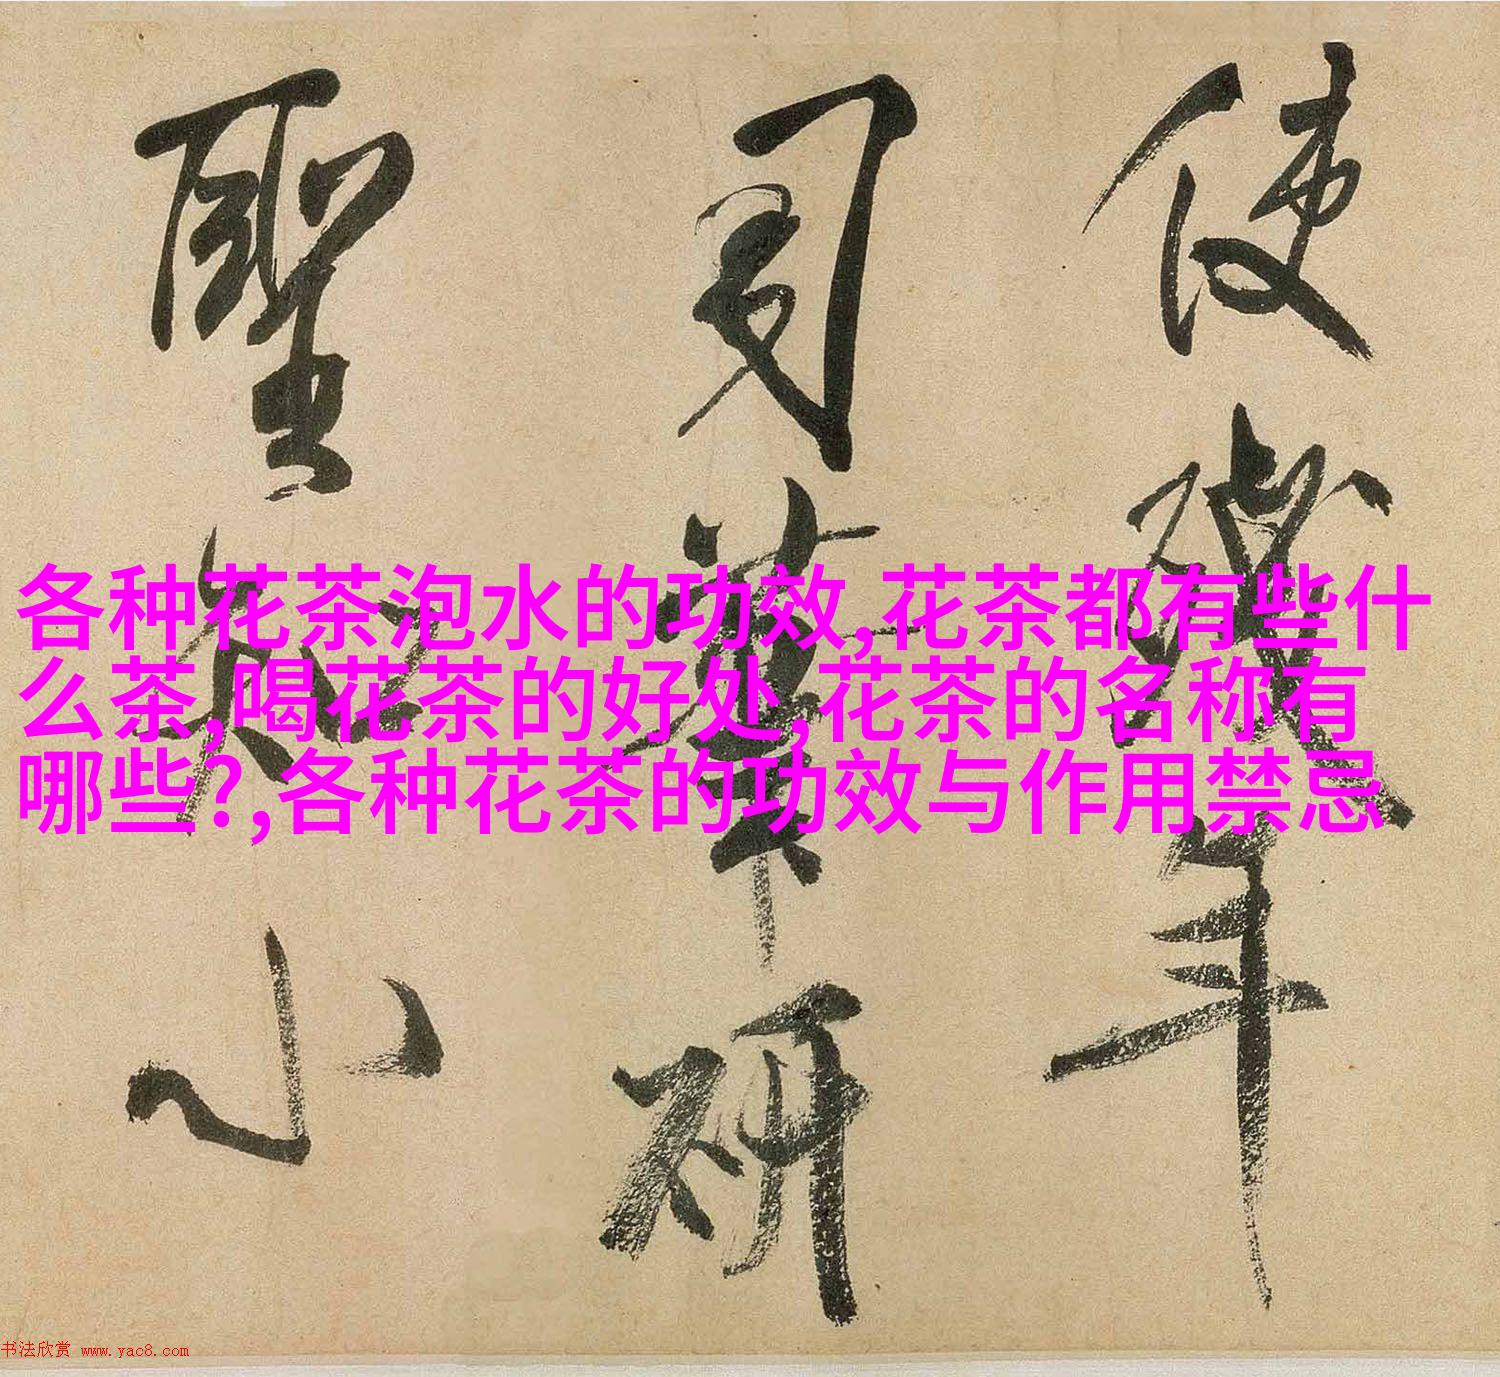 各种花茶泡水的功效,花茶都有些什
么茶,喝花茶的好处,花茶的名称有
哪些?,各种花茶的功效与作用禁忌
使
年
司
研
聖
知
小
书法欣赏 www.yac8.com